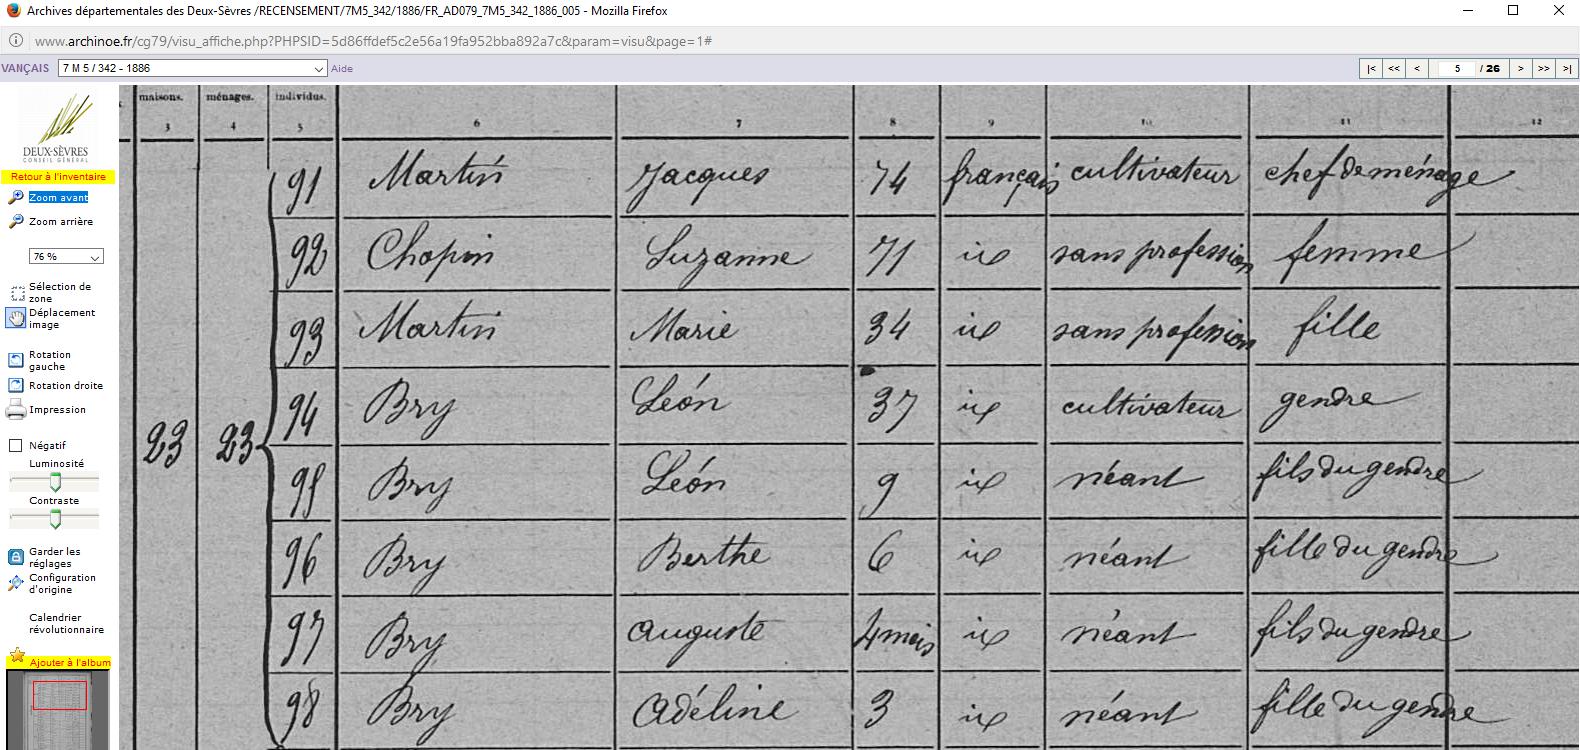 Archives départementales des Deux-Sèvres /RECENSEMENT/7M5_342/1886/FR_AD079_7M5_342_1886_005 - Mozilla Firefox
www.archinoe.fr/cg79/visu_affiche.php?PHPSID=5d86ffdef5c2e56a19fa952bba892a7c&param=visu&page=1#
VANÇAIS 7 M 5 / 342 - 1886 Aide |< << < 5 / 26 > >> >|
DEUX-SÈVRES
CONSEIL GÉNÉRAL
Retour à l'inventaire
Zoom avant
Zoom arrière
76 %
Sélection de
zone
Déplacement
image
Rotation
gauche
Rotation droite
Impression
Négatif
Luminosité
Contraste
Garder les
réglages
Configuration
d'origine
Calendrier
révolutionnaire
Ajouter à l'album
maisons. ménages. individus.
3 4 5 6 7 8 9 10 11 12
91 Martin Jacques 74 français cultivateur chef de ménage
92 Chopin Suzanne 71 id sans profession femme
93 Martin Marie 34 id sans profession fille
94 Bry Léon 37 id cultivateur gendre
23 23
95 Bry Léon 9 id néant fils du gendre
96 Bry Berthe 6 id néant fille du gendre
97 Bry Auguste 4 mois id néant fils du gendre
98 Bry Adéline 3 id néant fille du gendre